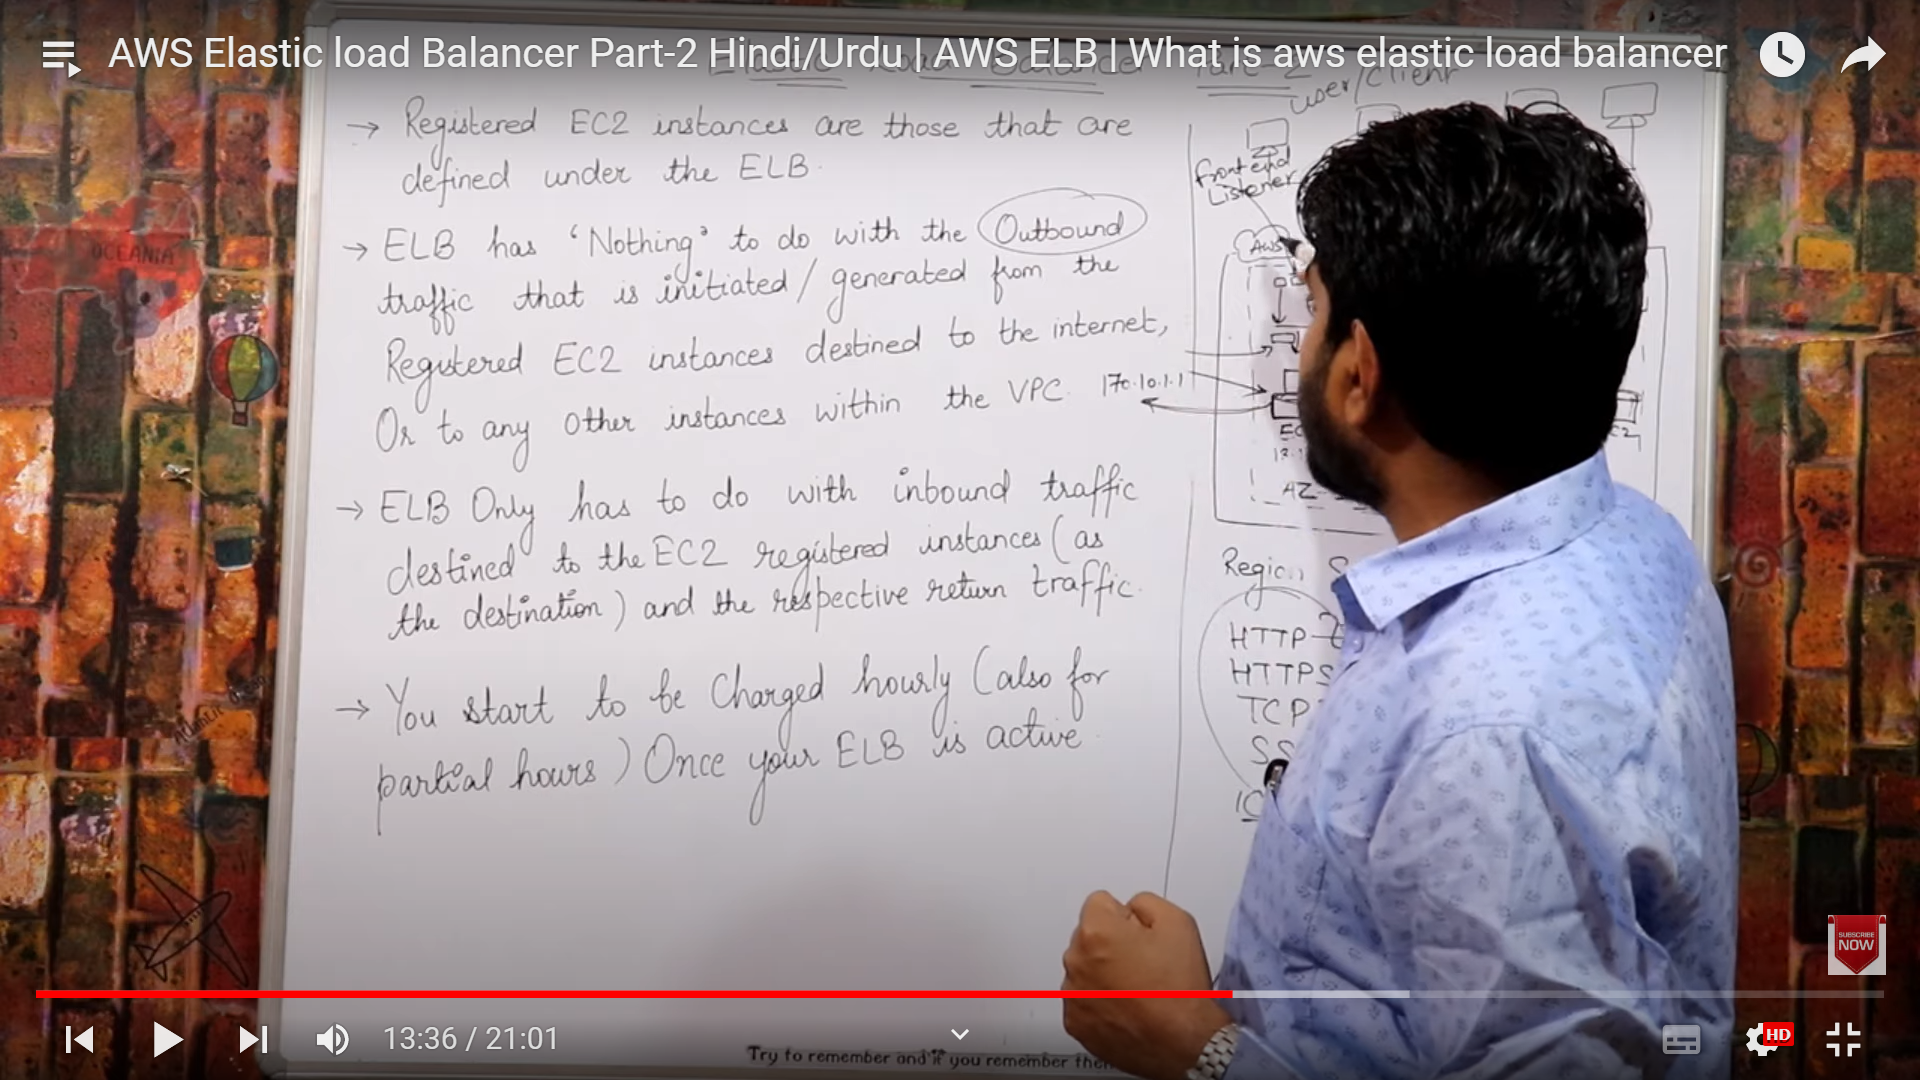 AWS Elastic load Balancer Part-2 Hindi/Urdu | AWS ELB | What is aws elastic load balancer
Elastic Load Balancer Part-2
→ Registered EC2 instances are those that are
defined under the ELB.
→ ELB has 'Nothing' to do with the Outbound
traffic that is initiated/generated from the
Registered EC2 instances destined to the internet,
Or to any other instances within the VPC.
→ ELB Only has to do with inbound traffic
destined to the EC2 registered instances (as
the destination) and the respective return traffic.
→ You start to be Charged hourly (also for
partial hours) Once your ELB is active.
user/client
Frontend
Listener
AWS
170.10.1.1
AZ
Region
HTTP
HTTPS
TCP
OCEANIA
SUBSCRIBE
NOW
13:36 / 21:01
HD
Try to remember and if you remember then